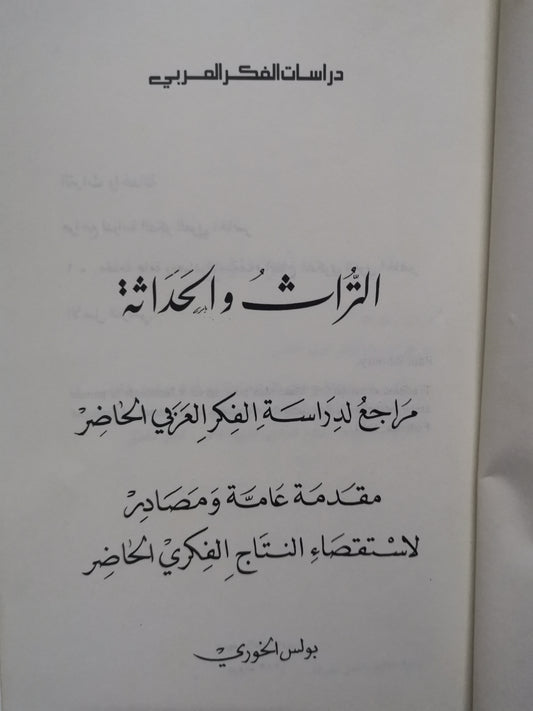 دراسات الفكر العربي
التُّراثُ والحَدَاثة
مَراجعُ لدِراسَةِ الفِكرِ العَرَبي الحَاضِر
مقدمَة عَامَّة وَمَصَادِر
لاسْتقصَاءِ النتَاجِ الفِكري الحَاضِر
بولس الخوري